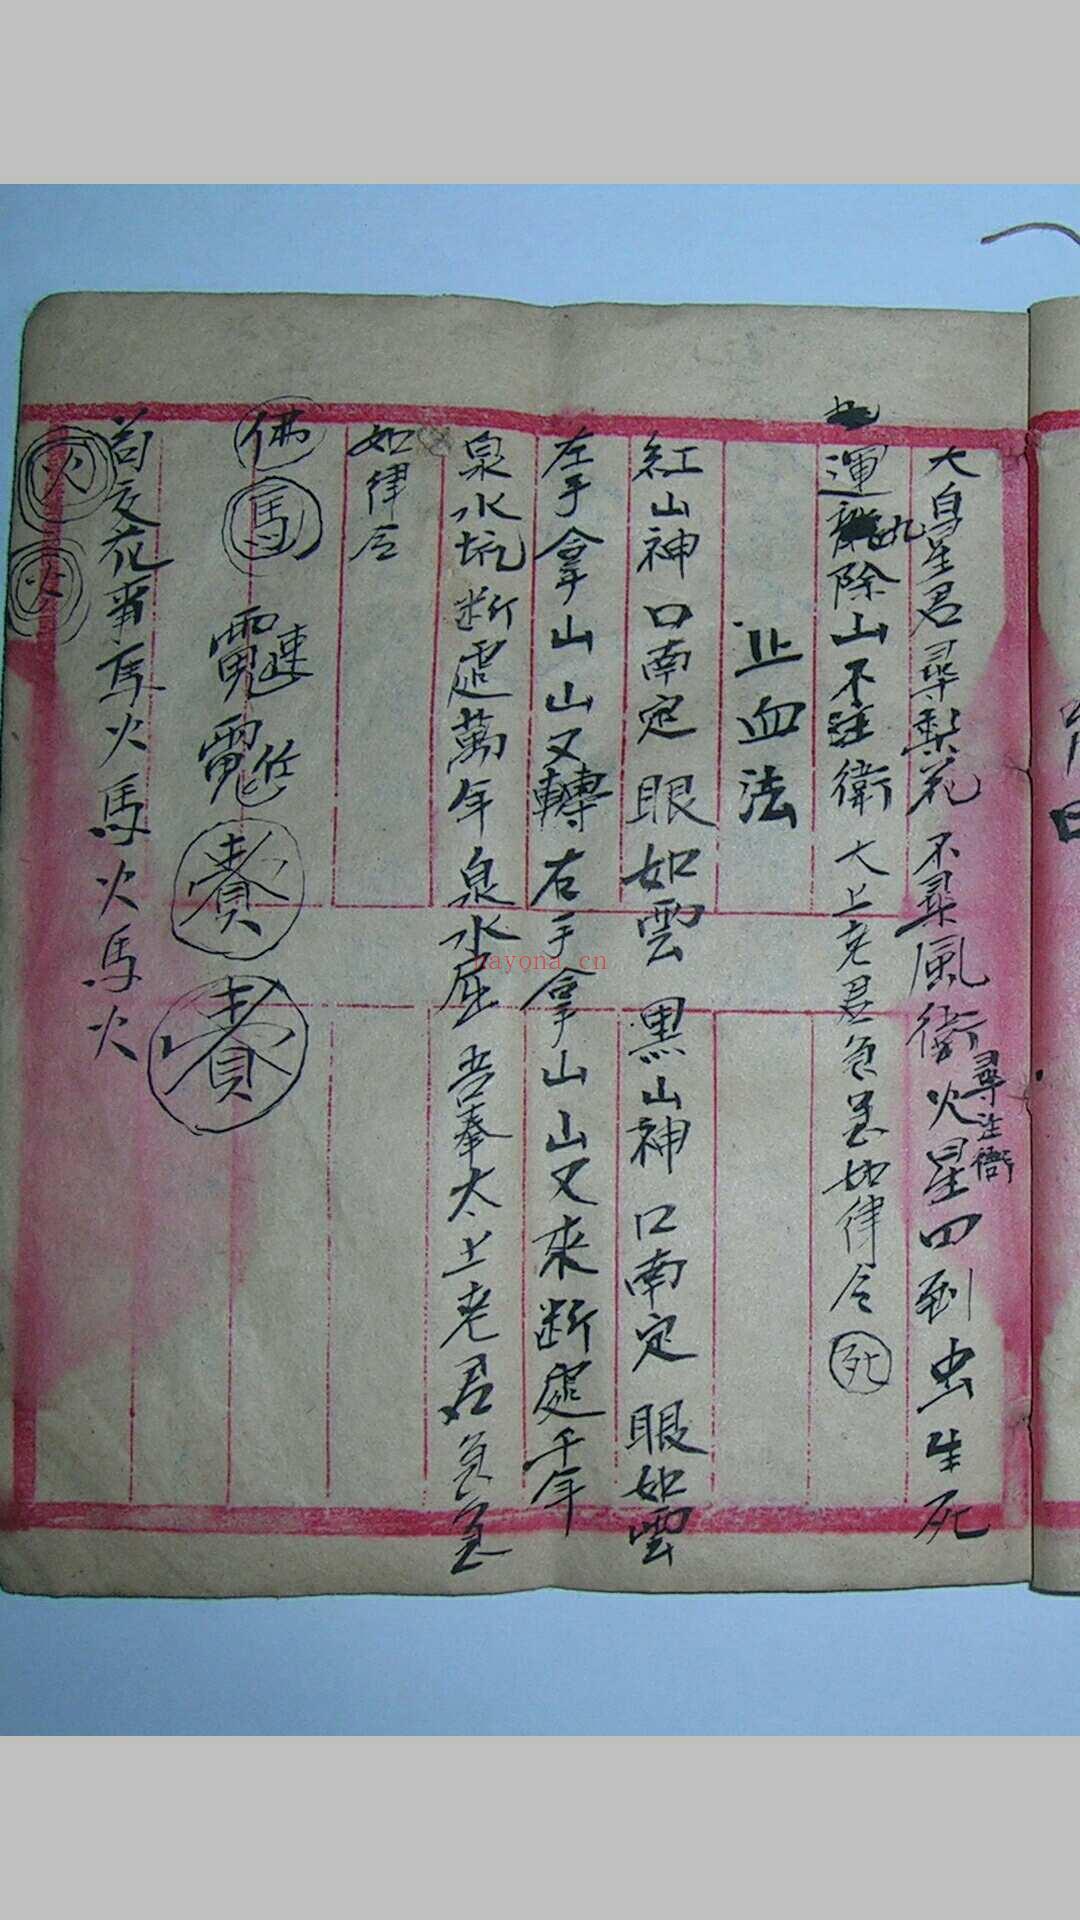 大皇星君尋梨花不尋風衛火星四到虫生死
尋注衛
運九除山不注衛大上老君急急如律令死
止血法
紅山神口南定眼如雲黑山神口南定眼如雲
左手拿山山又轉右手拿山山又來斷處千年
泉水坑断處萬年泉水在吾奉太上老君急急
如律令
佛馬
花爭馬火馬火馬火
火火
nayona.cn